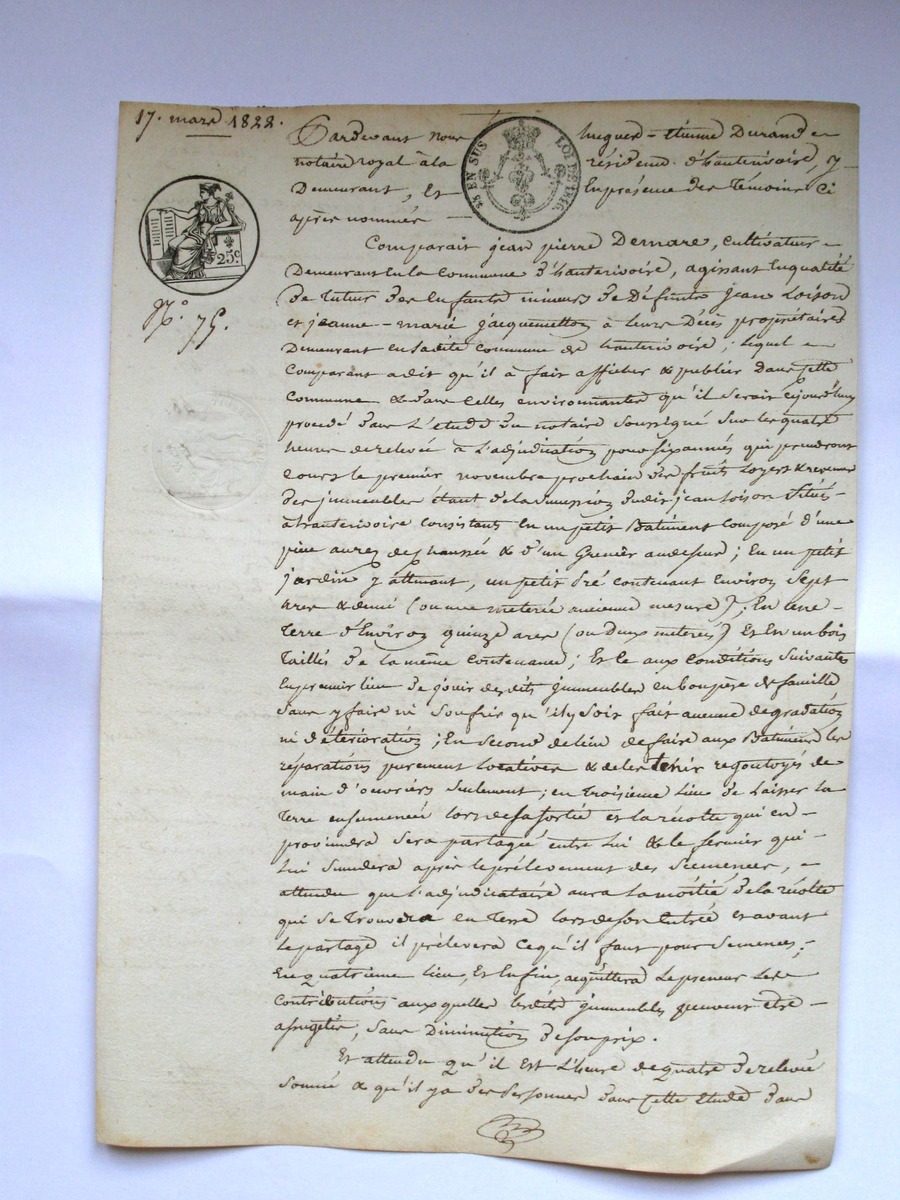 17. mars 1822.
Pardevant nous hugues-étienne Durand
notaire royal à la résidence d'hauterivoire, y
Demeurant, Et En présence des Témoins ci
après nommés
25 EN SUS LOI DE 1816
25c
N.º 75.
Comparait jean pierre cultivateur
Demeurant En la Commune d'hauterivoire, agissant En qualité
de tuteur des Enfants mineurs de Défunts jean Loison
et jeanne-marie jacquemetton à leurs Décès propriétaires
Demeurant en ladite commune de hauterivoire; lequel
Comparant a dit qu'il à fait afficher & publier dans cette
Commune & dans celles environnantes qu'il serait cejourd'huy
procédé dans L'étude du notaire soussigné sur les quatre
heures de relevée à L'adjudication pour six années qui prendront
Cours le premier novembre prochain des fruits Loyers & revenus
des jmmeubles étant de la succession dudit jean Loison Situés
à hauterivoire Consistants En un petit Batiment composé d'une
pièce au rez de chaussée & d'un Grenier au dessus; En un petit
jardin y attenant, un petit Pré contenant Environ Sept
ares & demi (ou une meterée ancienne mesure); En une
Terre d'Environ quinze ares (ou Deux meterées) Et En un bois
Taillis de la même Contenance; Et ce aux Conditions Suivantes
En premier lieu de jouir desdits jmmeubles en bon père de famille
Sans y faire ni Soufrir qu'il y soit fait aucune dégradation
ni déterioration; En second lieu de faire aux Batiments les
réparations purement Locatives & de les tenir regoutoyés de
main d'oeuvriers Seulement; en Troisieme Lieu de Laisser la
Terre ensemencée lors de sa sortie et la récolte qui en
proviendra Sera partagée entre Lui & le fermier qui
Lui Succedera après le prélevement des Semences,
attendu que L'adjudicataire aura La moitié de la récolte
qui se Trouvera en Terre lors de son Entrée et avant
Le partage il prélevera Ce qu'il faut pour Semences;
En quatrieme Lieu, Et Enfin, acquittera Le preneur Les
Contributions auxquelles lesdits jmmeubles peuvent être
assugetis, Sans Diminution de son prix.
Et attendu qu'il Est L'heure de quatre de relevée
Sonnée & qu'il y a des Personnes dans cette Etude dans